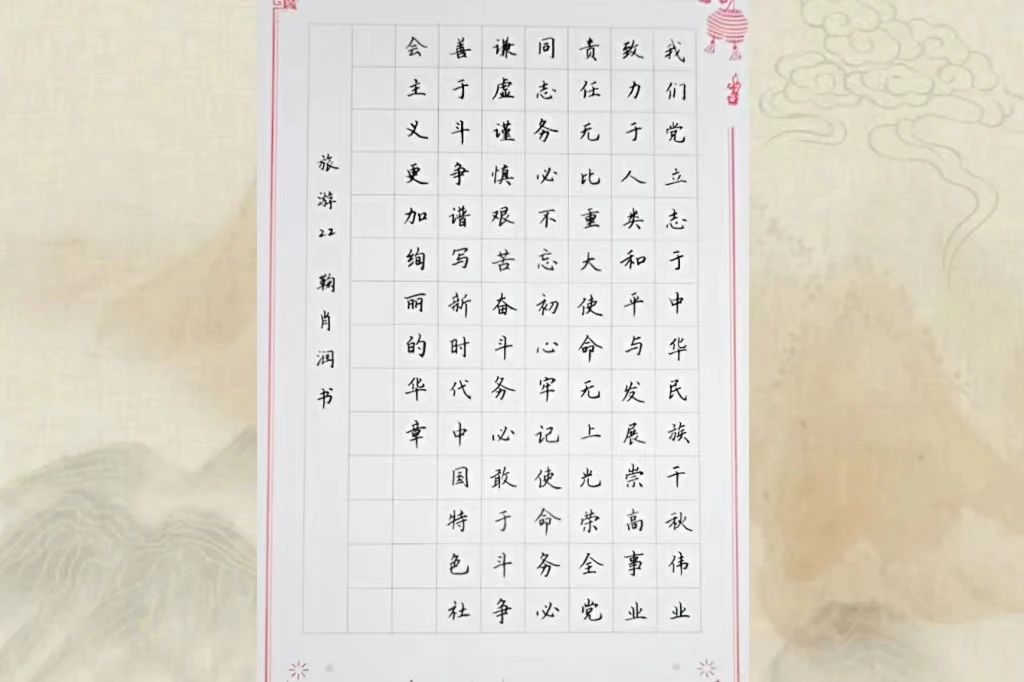 我们党立志于中华民族千秋伟业
致力于人类和平与发展崇高事业
责任无比重大使命无上光荣全党
同志务必不忘初心牢记使命务必
谦虚谨慎艰苦奋斗务必敢于斗争
善于斗争谱写新时代中国特色社
会主义更加绚丽的华章
旅游22 鞠肖润书